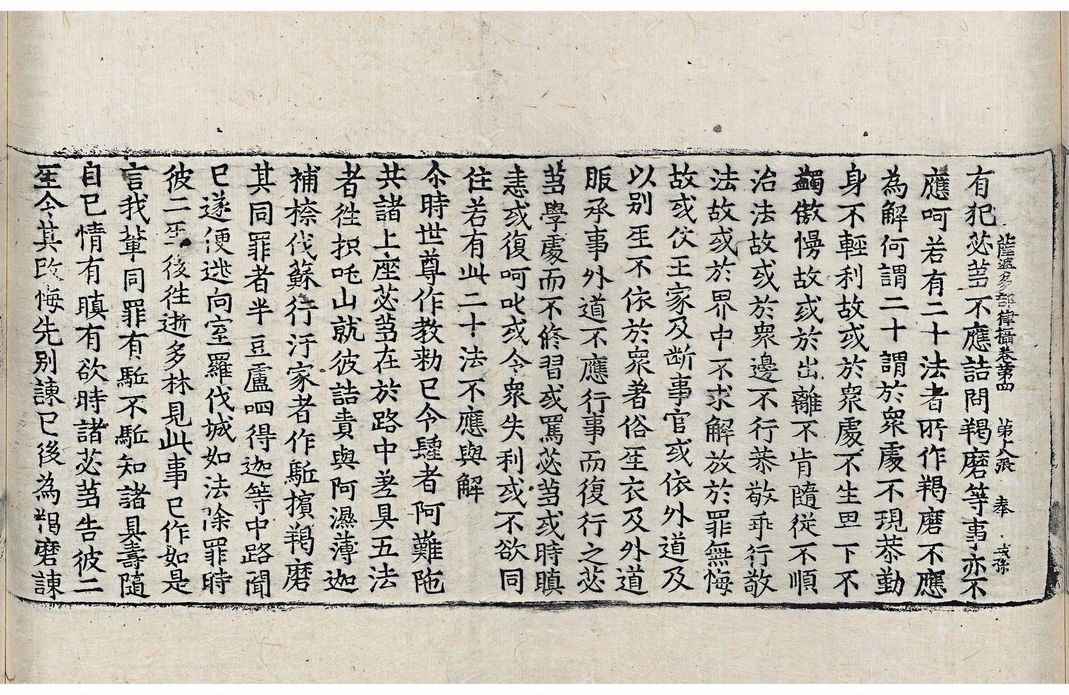 有犯苾芻不應詰問羯磨等事亦不
薩婆多部律攝卷第四 第八張 奉
應呵若有二十法者所作羯磨不應
為解何謂二十謂於衆處不現恭勤
身不輕利故或於衆處不生卑下不
蠲傲慢故或於出離不肯隨從不順
治法故或於衆邊不行恭敬乖行敬
法故或於界中不求解放於罪無悔
故或仗王家及斷事官或依外道及
以別𤯔不依於衆著俗𤯔衣及外道
服承事外道不應行事而復行之苾
芻學處而不修習或罵苾芻或時瞋
恚或復呵叱或令衆失利或不欲同
住若有此二十法不應與解
尒時世尊作教勑已令鍾者阿難陁
共諸上座苾芻在於路中差具五法
者往枳吒山就彼詰責與阿濕薄迦
補㮈伐蘇行汙家者作駈擯羯磨
其同罪者半豆盧呬得迦等中路聞
已遂便逃向室羅伐城如法除罪時
彼二𤯔後往逝多林見此事已作如是
言我輩同罪有駈不駈知諸具壽隨
自己情有瞋有欲時諸苾芻告彼二
𤯔令其改悔先別諫已後為羯磨諫